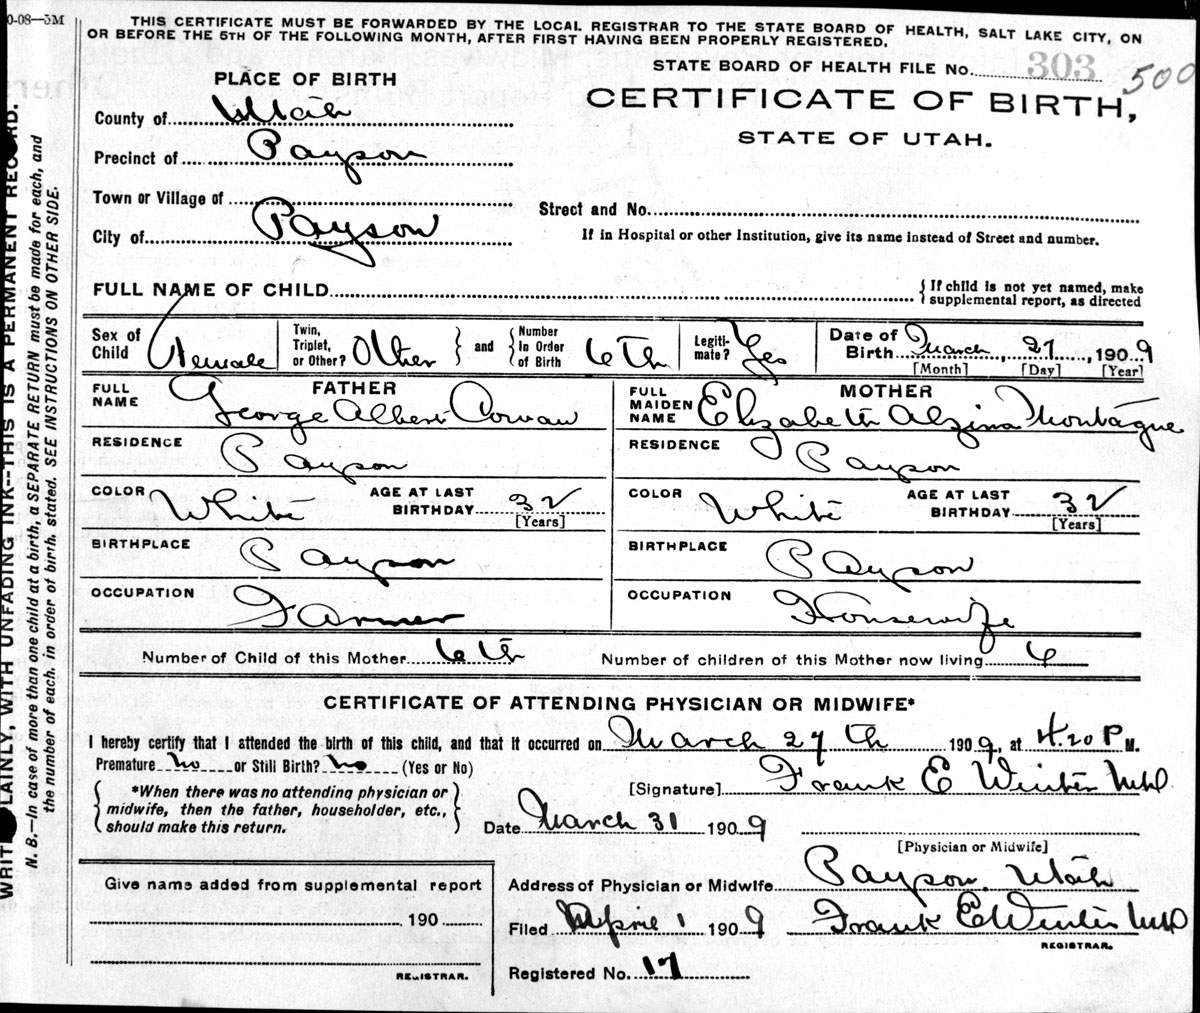 0-08—5M
THIS CERTIFICATE MUST BE FORWARDED BY THE LOCAL REGISTRAR TO THE STATE BOARD OF HEALTH, SALT LAKE CITY, ON
OR BEFORE THE 5TH OF THE FOLLOWING MONTH, AFTER FIRST HAVING BEEN PROPERLY REGISTERED.
STATE BOARD OF HEALTH FILE No. 303 500
PLACE OF BIRTH
CERTIFICATE OF BIRTH,
STATE OF UTAH.
County of Utah
Precinct of Payson
Town or Village of
Street and No.
City of Payson
If in Hospital or other Institution, give its name instead of Street and number.
FULL NAME OF CHILD
{ If child is not yet named, make
supplemental report, as directed
Sex of Child Female
Twin, Triplet, or Other? Other } and { Number In Order of Birth 6th
Legiti-mate? Yes
Date of Birth March, 27, 1909
[Month] [Day] [Year]
FATHER
FULL NAME George Albert Cowan
RESIDENCE Payson
COLOR White AGE AT LAST BIRTHDAY 32
[Years]
BIRTHPLACE Payson
OCCUPATION Farmer
MOTHER
FULL MAIDEN NAME Elizabeth Alzina Montague
RESIDENCE Payson
COLOR White AGE AT LAST BIRTHDAY 32
[Years]
BIRTHPLACE Payson
OCCUPATION Housewife
Number of Child of this Mother 6th Number of children of this Mother now living 6
CERTIFICATE OF ATTENDING PHYSICIAN OR MIDWIFE*
I hereby certify that I attended the birth of this child, and that it occurred on March 27th 1909, at 4.20 P M.
Premature no or Still Birth? no (Yes or No)
[Signature] Frank E Winter MD
{ *When there was no attending physician or
midwife, then the father, householder, etc.,
should make this return. }
Date March 31 1909
[Physician or Midwife]
Address of Physician or Midwife Payson Utah
Filed Aprie 1 1909 Frank E Winter MD
REGISTRAR.
Registered No. 17
Give name added from supplemental report
190
REGISTRAR.
WRITE PLAINLY, WITH UNFADING INK—THIS IS A PERMANENT RECORD.
N. B.—In case of more than one child at a birth, a SEPARATE RETURN must be made for each, and
the number of each, in order of birth, stated. SEE INSTRUCTIONS ON OTHER SIDE.